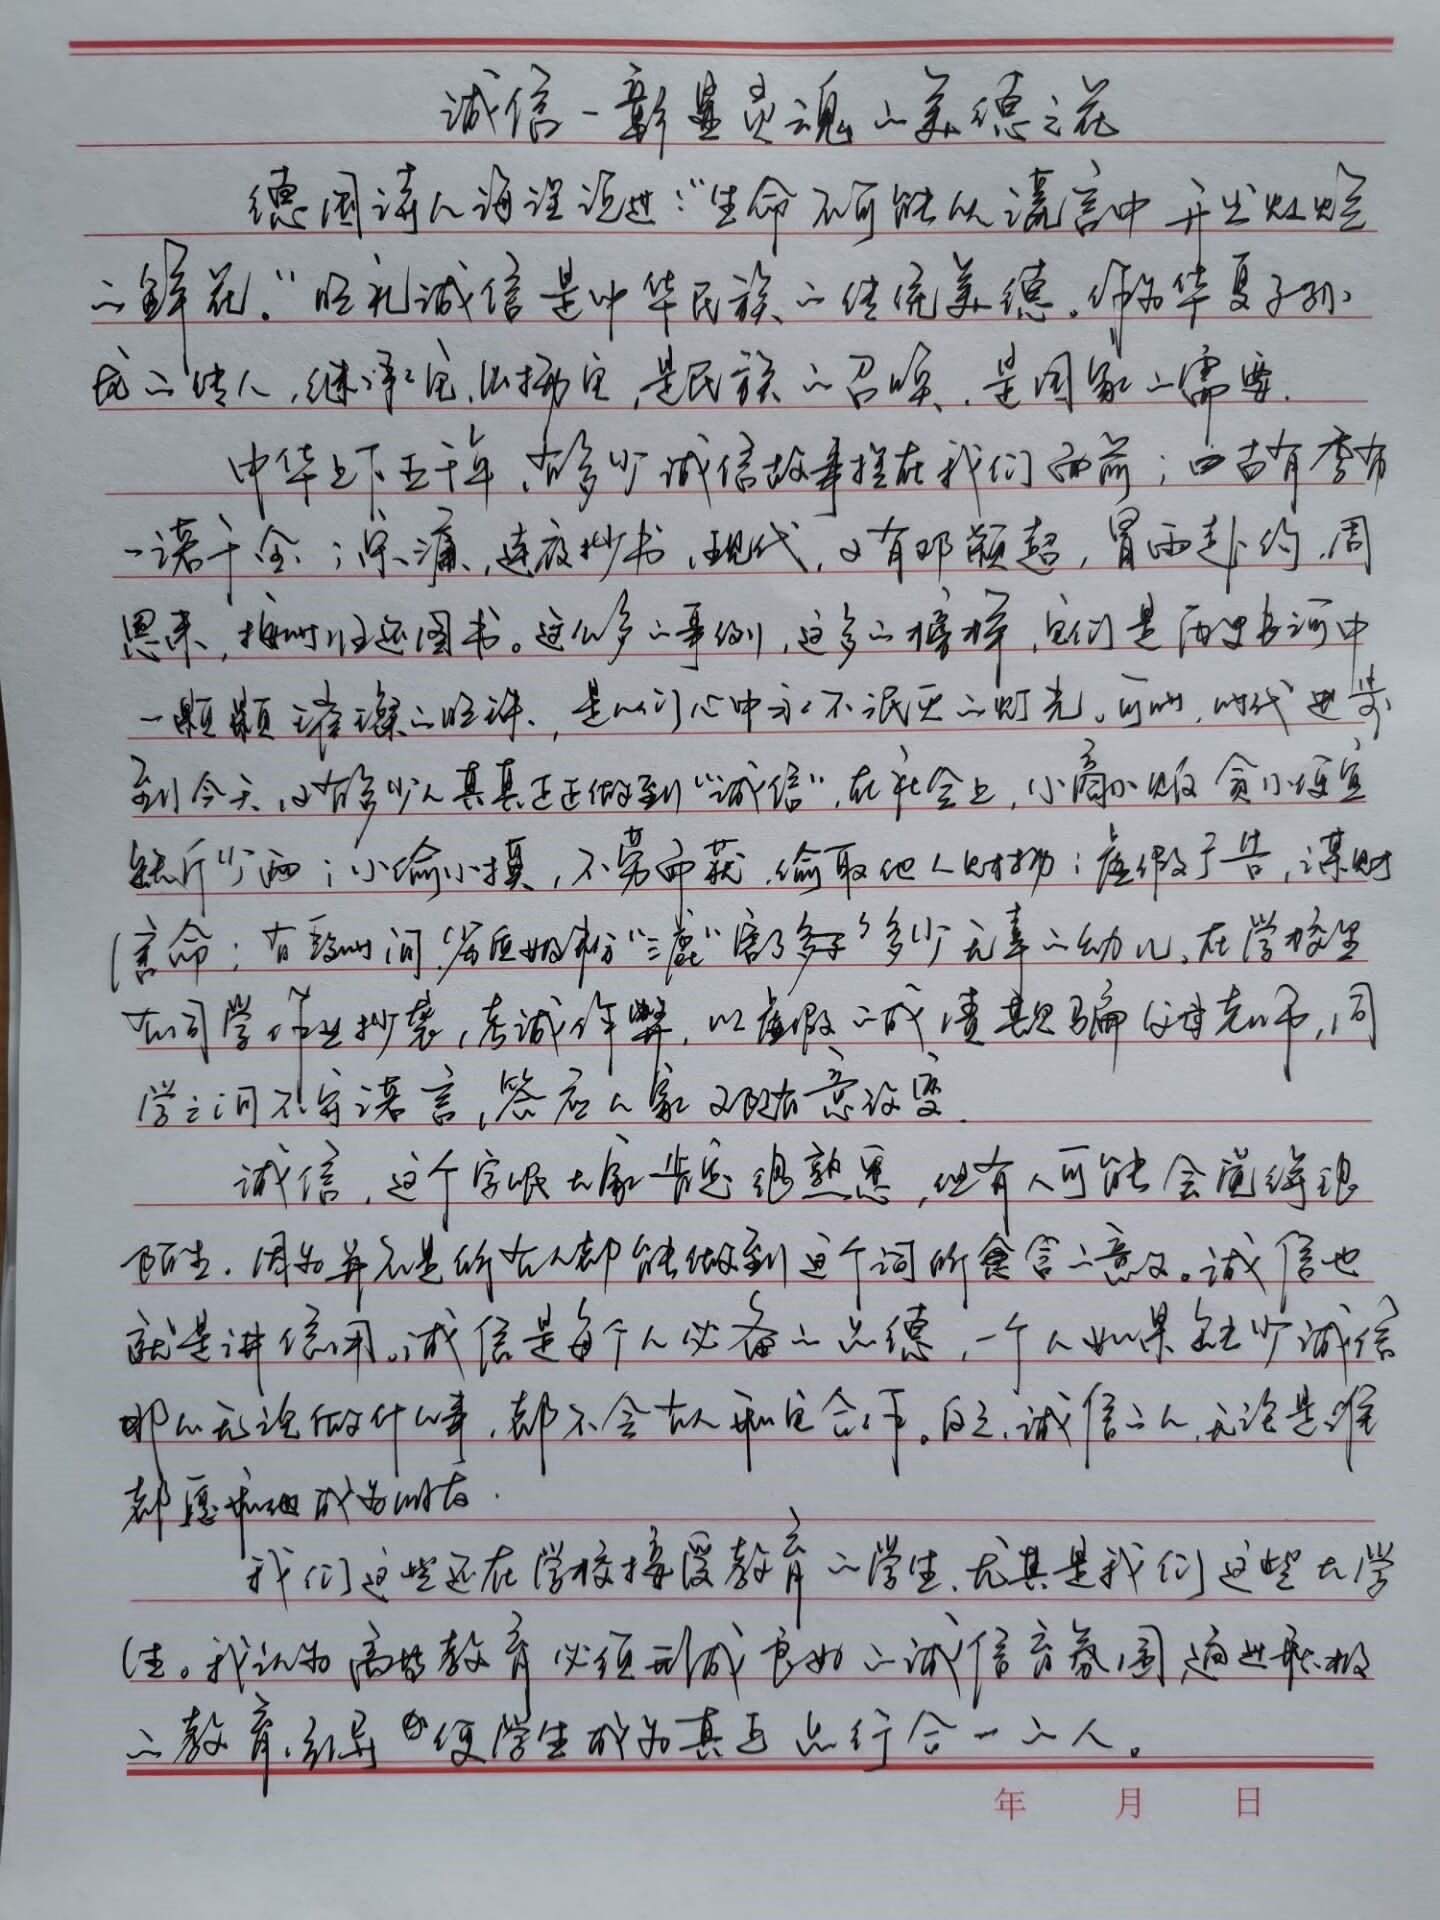 诚信一彰显灵魂的美德之花
德国诗人海涅说过:“生命不可能从谎言中开出灿烂
的鲜花。”明礼诚信是中华民族的传统美德。作为华夏子孙、
龙的传人,继承它,弘扬它,是民族的召唤,是国家的需要.
中华上下五千年,有多少诚信故事摆在我们面前;古有季布
一诺千金;宋濂,连夜抄书,现代,又有邓颖超,冒雨赴约,周
恩来,按时归还图书。这么多的事例,这多的榜样,它们是历史长河中
一颗颗璀璨的明珠,是人们心中永不泯灭的灯光。可时,时代进步
到今天,又有多少人真真正正做到“诚信”,在社会上,小商小贩贪小便宜
缺斤少两;小偷小摸,不劳而获,偷取他人财物;虚假广告,谋财
害命;有段时间,劣质奶粉“三鹿”害了多少无辜的幼儿。在学校里
有同学作业抄袭,考试作弊,以虚假的成绩欺骗父母老师,同
学之间不守诺言,答应人家又随意改变.
诚信,这个字眼大家肯定很熟悉,但有人可能会觉得很
陌生.因为并不是所有人都能做到这个词所含的意义。诚信也
就是讲信用。诚信是每个人必备的品德,一个人如果缺少诚信
那么无论做什么事,都不会有人和它合作。反之,诚信的人,无论是谁
都愿和他成为朋友.
我们这些还在学校接受教育的学生,尤其是我们这些大学
生。我认为高等教育必须形成良好的诚信育氛围,通过积极
的教育,引导 使学生成为真正品行合一的人。
年 月 日